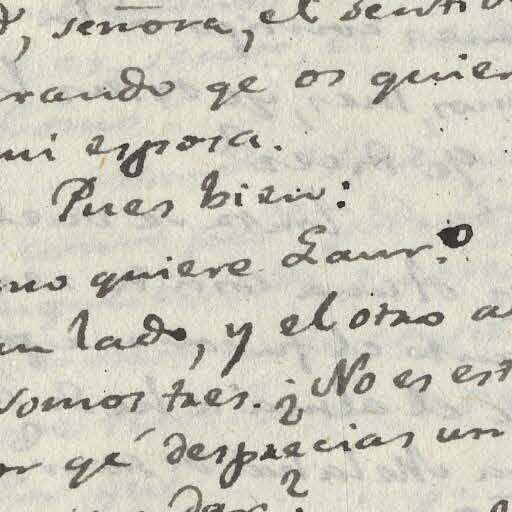 , señora, el senti
rando qe os quier
mi esposa.
Pues bien:
no quiere Laur.º
un lado, y el otro a
somos tres. ¿No es est
or qé desprecias un